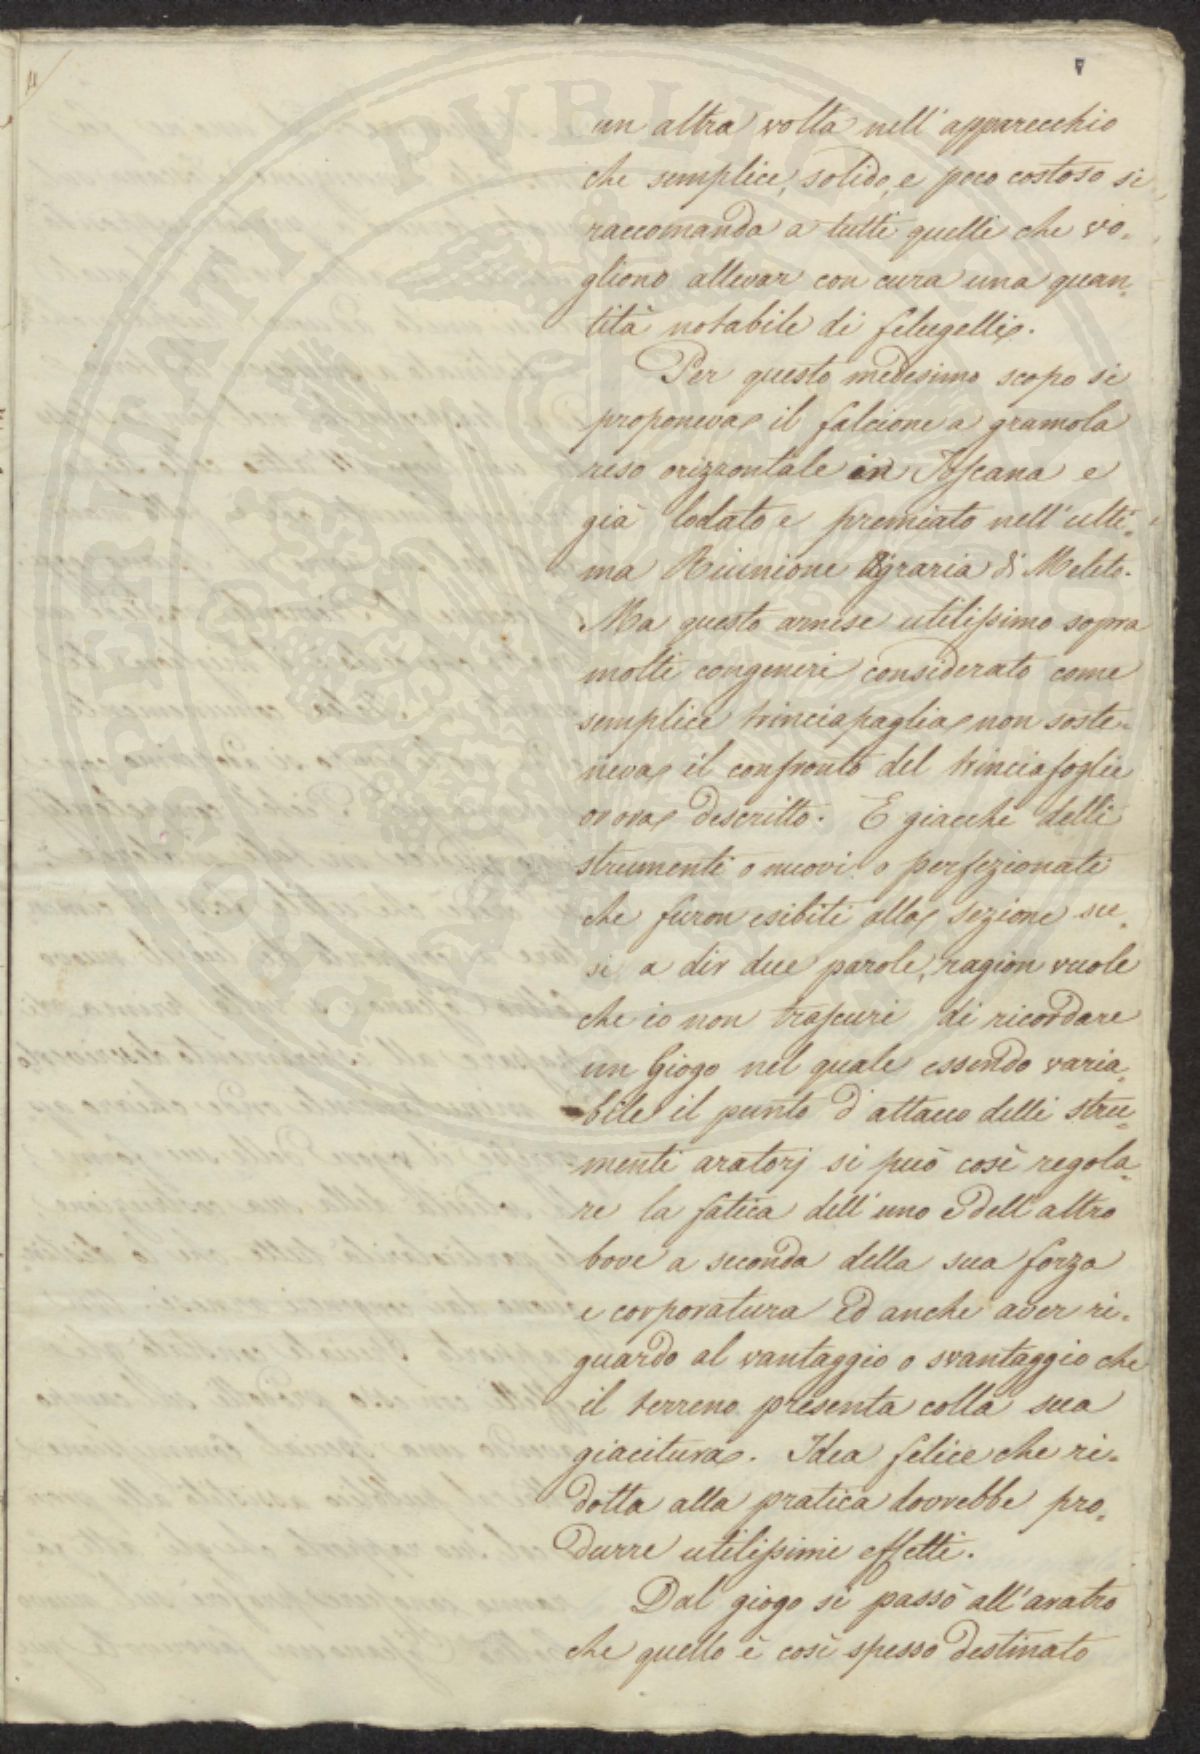 un altra volta nell'apparecchio
che semplice, solido, e poco costoso si
raccomanda a tutti quelli che vo=
gliono allevar con cura una quan=
tità notabile di filugelli.
Per questo medesimo scopo si
proponeva il falcione a gramola
reso orizzontale in Toscana e
già lodato e premiato nell'ulti=
ma Riunione Agraria di Meleto.
Ma questo arnese utilissimo sopra
molti congeneri considerato come
semplice trinciapaglia non soste=
neva il confronto del trinciafoglie
or ora descritto. E giacchè delli
strumenti o nuovi o perfezionati
che furon esibiti alla sezione su=
si a dir due parole, ragion vuole
che io non trascuri di ricordare
un Giogo nel quale essendo varia=
bile il punto d'attacco delli stru=
menti aratorj si può così regola=
re la fatica dell'uno e dell'altro
bove a seconda della sua forza
e corporatura ed anche aver ri=
guardo al vantaggio o svantaggio che
il terreno presenta colla sua
giacitura. Idea felice che ri=
dotta alla pratica dovrebbe pro=
durre utilissimi effetti.
Dal giogo si passò all'aratro
che quello è così spesso destinato